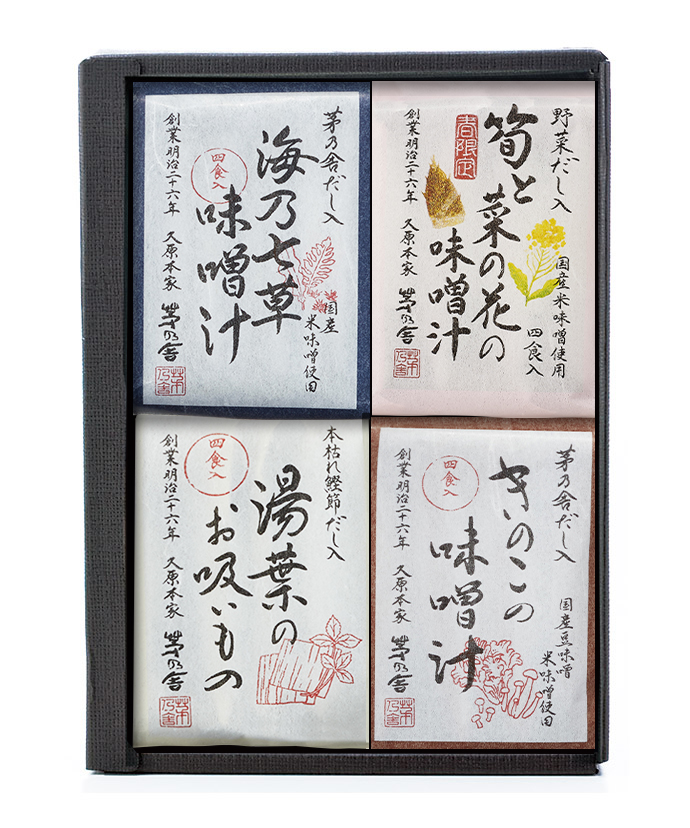 茅乃舎だし入
海乃七草
味噌汁
四食入
国産
米味噌使用
創業明治二十六年 久原本家 茅乃舎
茅乃舎
野菜だし入
筍と
菜の花の
味噌汁
春限定
国産米味噌使用
四食入
創業明治二十六年 久原本家 茅乃舎
茅乃舎
本枯れ鰹節だし入
湯葉の
お吸いもの
四食入
創業明治二十六年 久原本家 茅乃舎
茅乃舎
茅乃舎だし入
きのこの
味噌汁
四食入
国産豆味噌
米味噌使用
創業明治二十六年 久原本家 茅乃舎
茅乃舎